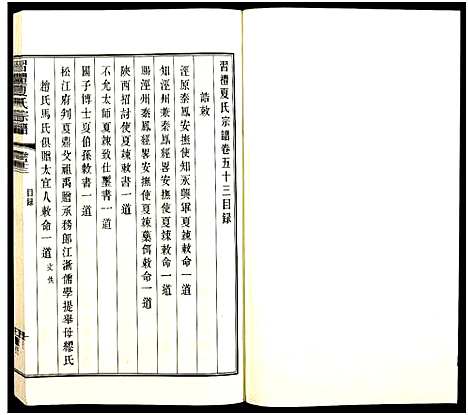 習禮夏氏宗譜卷五十三目録
誥敕
涇原秦鳳安撫使知永興軍夏竦敕命一道
知涇州兼秦鳳經畧安撫使夏竦敕命一道
賜涇州兼秦鳳經畧安撫使夏竦藥餌敕命一道
陝西招討使夏竦敕書一道
不允太師夏竦致仕璽書一道
國子博士夏伯孫敕書一道
松江府判夏鼎父祖禹贈承務郎江浙儒學提舉母繆氏
趙氏馬氏俱贈太宜人敕命一道 文佚
習禮夏氏宗譜
目録